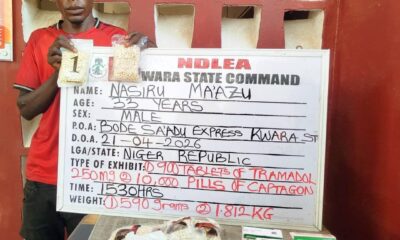 1
NDLEA
WARA STATE COMMAND
NAME: NASIRU MA'AZU
AGE: 33 YEARS
SEX: MALE
P.O.A: BODE SA'ADU EXPRESS KWARA ST
D.O.A: 21-04-2026
LGA/STATE: NIGER REPUBLIC
TYPE OF EXHIBIT: ① 900 TABLETS OF TRAMADOL
250MG ② 10,000 PILLS OF CAPTAGON
TIME: 1530HRS
WEIGHT: ① 590 grams ② 1.812 KG